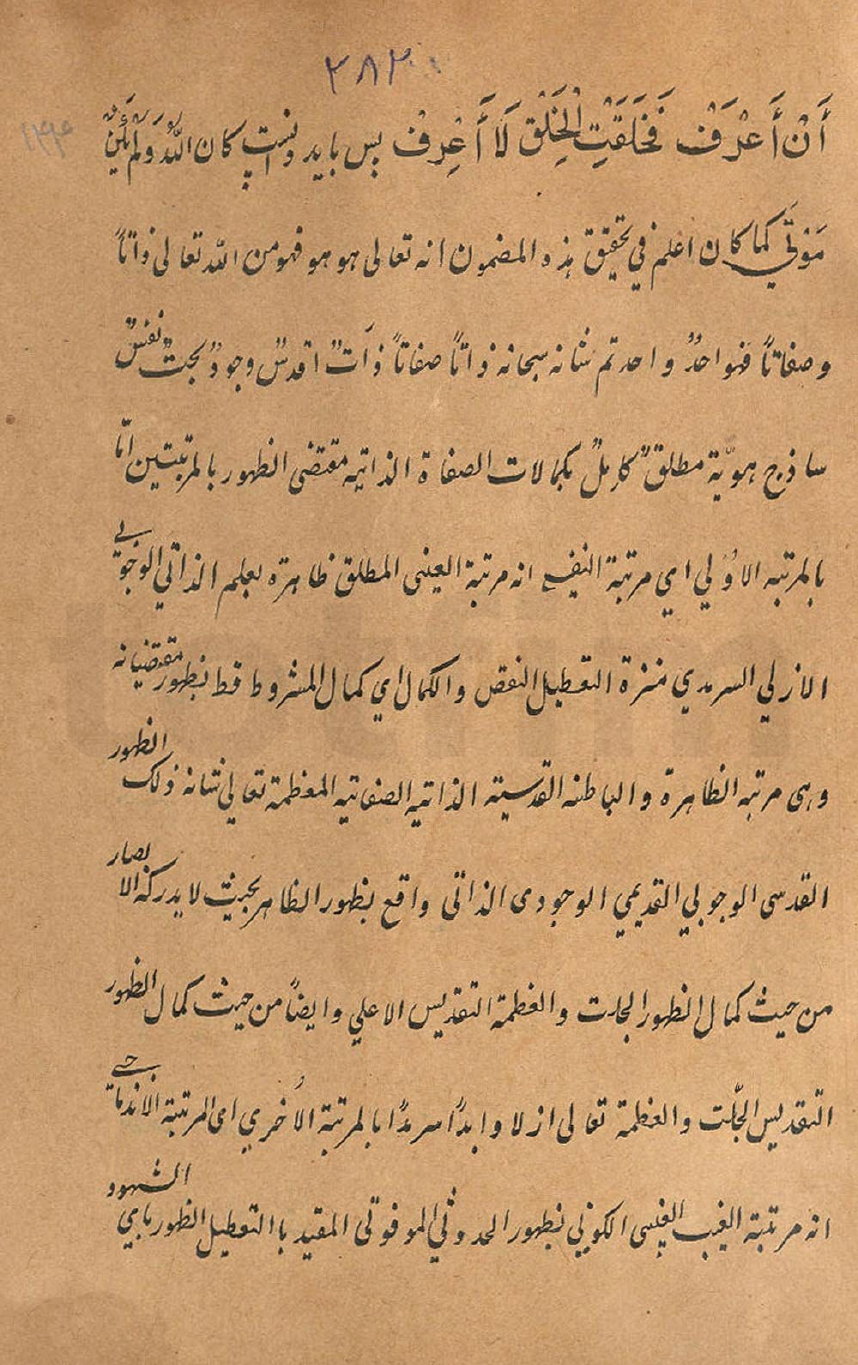 ٢٨٢
أَنْ أَعْرَفَ فَخَلَقَتِ الْخَلْقَ لَاَ أَعْرِفْ پس باید دانست کان اللّٰه ولم یکن
کما کان اعلم فی تحقیق هذه المضمون انه تعالی هو هو فهو من اللّٰه تعالی ذاتاً
وصفاتاً فهو واحدٌ واحد تم شانه سبحانه ذاتاً صفاتاً ذاتٌ اقدسٌ وجودٌ بحتٌ نفسٌ
ساذج هویة مطلقٌ کاملٌ بکمالات الصفاة الذاتیه مقتضی الظهور بالمرتبتین امّا
بالمرتبه الاوُلی ای مرتبة انه مرتبة الغنی المطلق ظاهرة بعلم الذاتی الوجوبی
الازلی السرمدی منزة التعطیل النقص والکمال ای کمال المشروط فط بظهور مقتضیانه
وهی مرتبه الظاهرة والباطنه القدسیته الذاتیه الصفاتیه المعظمة تعالی شانه ذلک الظهور
القدسی الوجوبی القدیمی الوجودی الذاتی واقع بظهور الظاهر بحیث لا یدرکه الابصار
من حیث کمال الظهور الجلت والعظمة التقدیس الاعلی وایضاً من حیث کمال الظهور
التقدیس الجلّت والعظمة تعالی ازلا وابداً سرمداً بالمرتبة الاُخری ای المرتبة
انه مرتبة الغیب الکونی بظهور الحدوثی المقید باالتعطیل الظهور الشهود